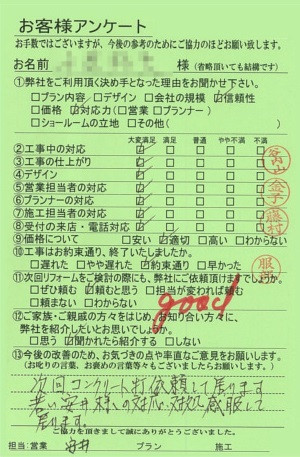 お客様アンケート
お手数ではございますが、今後の参考のためにご協力のほどお願い致します。
お名前 様（省略頂いても結構です）
①弊社をご利用頂く決め手となった理由をお聞かせ下さい。
□プラン内容／デザイン □会社の規模 ☑信頼性
□価格 ☑対応力（□営業 □プランナー）
□ショールームの立地 □その他（ ）
大変満足 満足 普通 やや不満 不満
②工事中の対応 ☑ □ □ □ □
③工事の仕上がり ☑ □ □ □ □
④デザイン ☑ □ □ □ □
⑤営業担当者の対応 ☑ □ □ □ □
⑥プランナーの対応 ☑ □ □ □ □
⑦施工担当者の対応 ☑ □ □ □ □
⑧受付の来店・電話対応 ☑ □ □ □ □
⑨価格について □安い ☑適切 □高い □わからない
⑩工事はお約束通り、終了いたしましたか。
□遅れた □やや遅れた ☑約束通り □早かった
⑪次回リフォームをご検討の際にも、弊社にご依頼頂けますでしょうか。
□ぜひ頼む ☑頼むと思う □担当が変われば頼む
□頼まない □わからない
good
⑫ご家族・ご親戚の方々をはじめ、お知り合い方々に、
弊社を紹介したいとお思いでしょうか。
□思う ☑聞かれたら紹介する □しない
⑬今後の改善のため、お気づきの点や率直なご意見をお願いします。
（お叱りの言葉、お褒めの言葉等々もございましたらお願いします。）
次回コンクリート打依頼して居ります
若い安井様の対応、対処感服して
居ります。
ご協力を頂きまして誠にありがとうございました。
担当：営業 安井 プラン 施工
金子
藤村